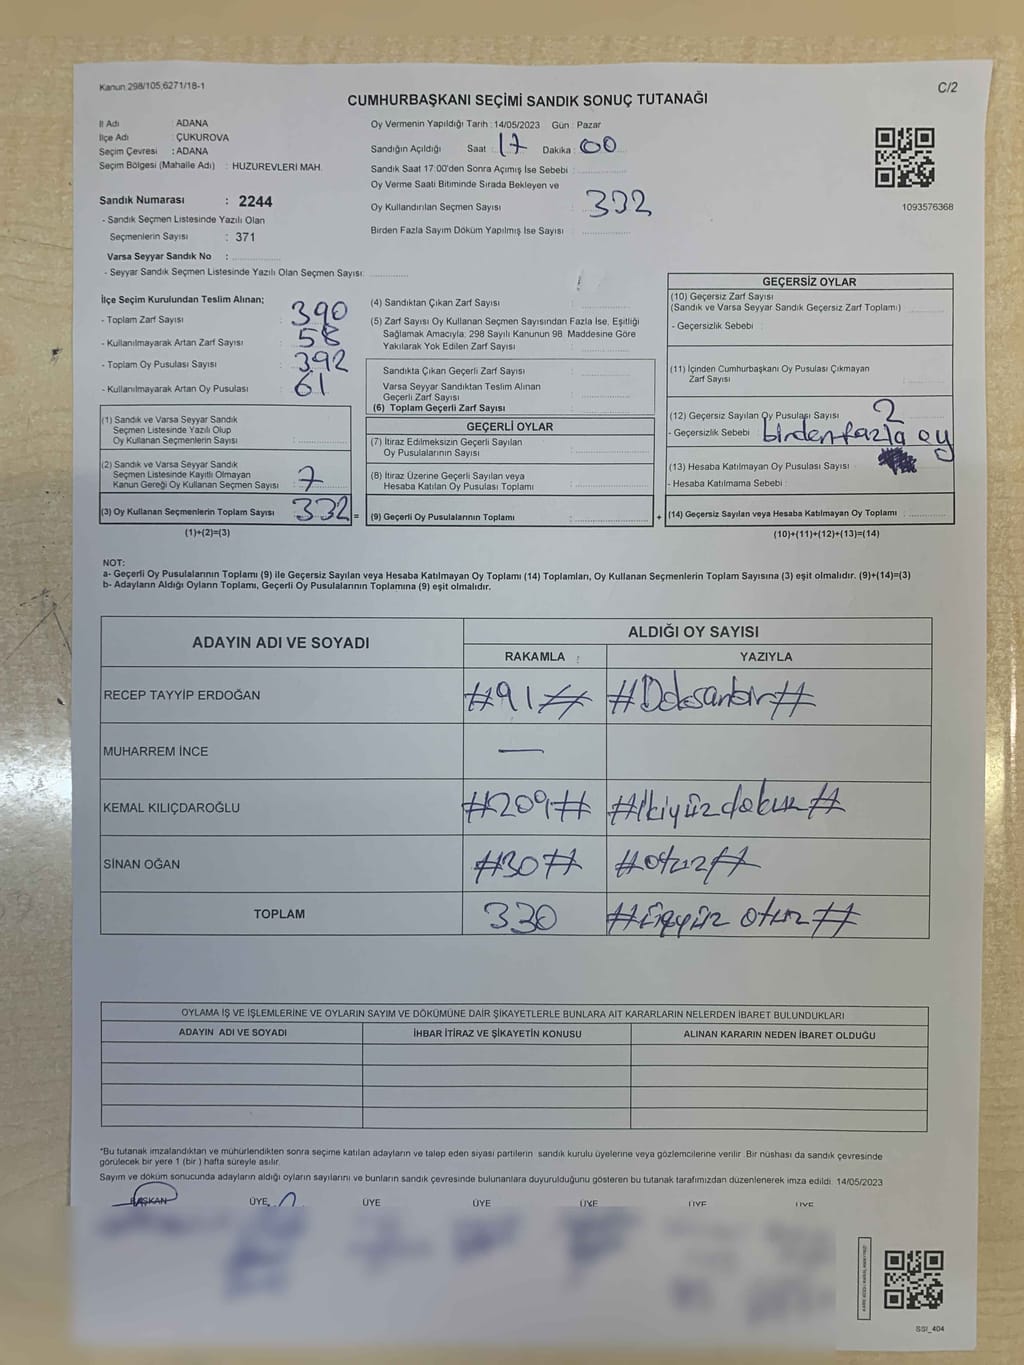 Kanun 298/105;6271/18-1
C/2
CUMHURBAŞKANI SEÇİMİ SANDIK SONUÇ TUTANAĞI
İl Adı : ADANA
İlçe Adı : ÇUKUROVA
Seçim Çevresi : ADANA
Seçim Bölgesi (Mahalle Adı) : HUZUREVLERİ MAH.
Sandık Numarası : 2244
- Sandık Seçmen Listesinde Yazılı Olan
Seçmenlerin Sayısı : 371
Varsa Seyyar Sandık No :
- Seyyar Sandık Seçmen Listesinde Yazılı Olan Seçmen Sayısı:
Oy Vermenin Yapıldığı Tarih : 14/05/2023 Gün : Pazar
Sandığın Açıldığı Saat : 17 Dakika : 00
Sandık Saat 17:00'den Sonra Açımış İse Sebebi :
Oy Verme Saati Bitiminde Sırada Bekleyen ve
Oy Kullandırılan Seçmen Sayısı : 332
Birden Fazla Sayım Döküm Yapılmış İse Sayısı :
1093576368
İlçe Seçim Kurulundan Teslim Alınan;
- Toplam Zarf Sayısı : 390
- Kullanılmayarak Artan Zarf Sayısı : 58
- Toplam Oy Pusulası Sayısı : 392
- Kullanılmayarak Artan Oy Pusulası : 61
(1) Sandık ve Varsa Seyyar Sandık
Seçmen Listesinde Yazılı Olup
Oy Kullanan Seçmenlerin Sayısı :
(2) Sandık ve Varsa Seyyar Sandık
Seçmen Listesinde Kayıtlı Olmayan
Kanun Gereği Oy Kullanan Seçmen Sayısı : 7
(3) Oy Kullanan Seçmenlerin Toplam Sayısı : 332 =
(1)+(2)=(3)
(4) Sandıktan Çıkan Zarf Sayısı :
(5) Zarf Sayısı Oy Kullanan Seçmen Sayısından Fazla İse, Eşitliği
Sağlamak Amacıyla; 298 Sayılı Kanunun 98. Maddesine Göre
Yakılarak Yok Edilen Zarf Sayısı :
Sandıkta Çıkan Geçerli Zarf Sayısı :
Varsa Seyyar Sandıktan Teslim Alınan
Geçerli Zarf Sayısı :
(6) Toplam Geçerli Zarf Sayısı :
GEÇERLİ OYLAR
(7) İtiraz Edilmeksizin Geçerli Sayılan
Oy Pusulalarının Sayısı :
(8) İtiraz Üzerine Geçerli Sayılan veya
Hesaba Katılan Oy Pusulası Toplamı :
(9) Geçerli Oy Pusulalarının Toplamı : +
GEÇERSİZ OYLAR
(10) Geçersiz Zarf Sayısı
(Sandık ve Varsa Seyyar Sandık Geçersiz Zarf Toplamı) :
- Geçersizlik Sebebi :
(11) İçinden Cumhurbaşkanı Oy Pusulası Çıkmayan
Zarf Sayısı :
(12) Geçersiz Sayılan Oy Pusulası Sayısı : 2
- Geçersizlik Sebebi : birden fazla oy
(13) Hesaba Katılmayan Oy Pusulası Sayısı :
- Hesaba Katılmama Sebebi :
(14) Geçersiz Sayılan veya Hesaba Katılmayan Oy Toplamı :
(10)+(11)+(12)+(13)=(14)
NOT:
a- Geçerli Oy Pusulalarının Toplamı (9) ile Geçersiz Sayılan veya Hesaba Katılmayan Oy Toplamı (14) Toplamları, Oy Kullanan Seçmenlerin Toplam Sayısına (3) eşit olmalıdır. (9)+(14)=(3)
b- Adayların Aldığı Oyların Toplamı, Geçerli Oy Pusulalarının Toplamına (9) eşit olmalıdır.
ADAYIN ADI VE SOYADI
ALDIĞI OY SAYISI
RAKAMLA : YAZIYLA
RECEP TAYYİP ERDOĞAN #91# #Doksanbir#
MUHARREM İNCE —
KEMAL KILIÇDAROĞLU #209# #İkiyüzdokuz#
SİNAN OĞAN #30# #otuz#
TOPLAM 330 #üçyüz otuz#
OYLAMA İŞ VE İŞLEMLERİNE VE OYLARIN SAYIM VE DÖKÜMÜNE DAİR ŞİKAYETLERLE BUNLARA AİT KARARLARIN NELERDEN İBARET BULUNDUKLARI
ADAYIN ADI VE SOYADI İHBAR İTİRAZ VE ŞİKAYETİN KONUSU ALINAN KARARIN NEDEN İBARET OLDUĞU
*Bu tutanak imzalandıktan ve mühürlendikten sonra seçime katılan adayların ve talep eden siyasi partilerin sandık kurulu üyelerine veya gözlemcilerine verilir. Bir nüshası da sandık çevresinde
görülecek bir yere 1 (bir ) hafta süreyle asılır.
Sayım ve döküm sonucunda adayların aldığı oyların sayılarını ve bunların sandık çevresinde bulunanlara duyurulduğunu gösteren bu tutanak tarafımızdan düzenlenerek imza edildi. 14/05/2023
BAŞKAN ÜYE ÜYE ÜYE ÜYE ÜYE ÜYE
SSİ_404